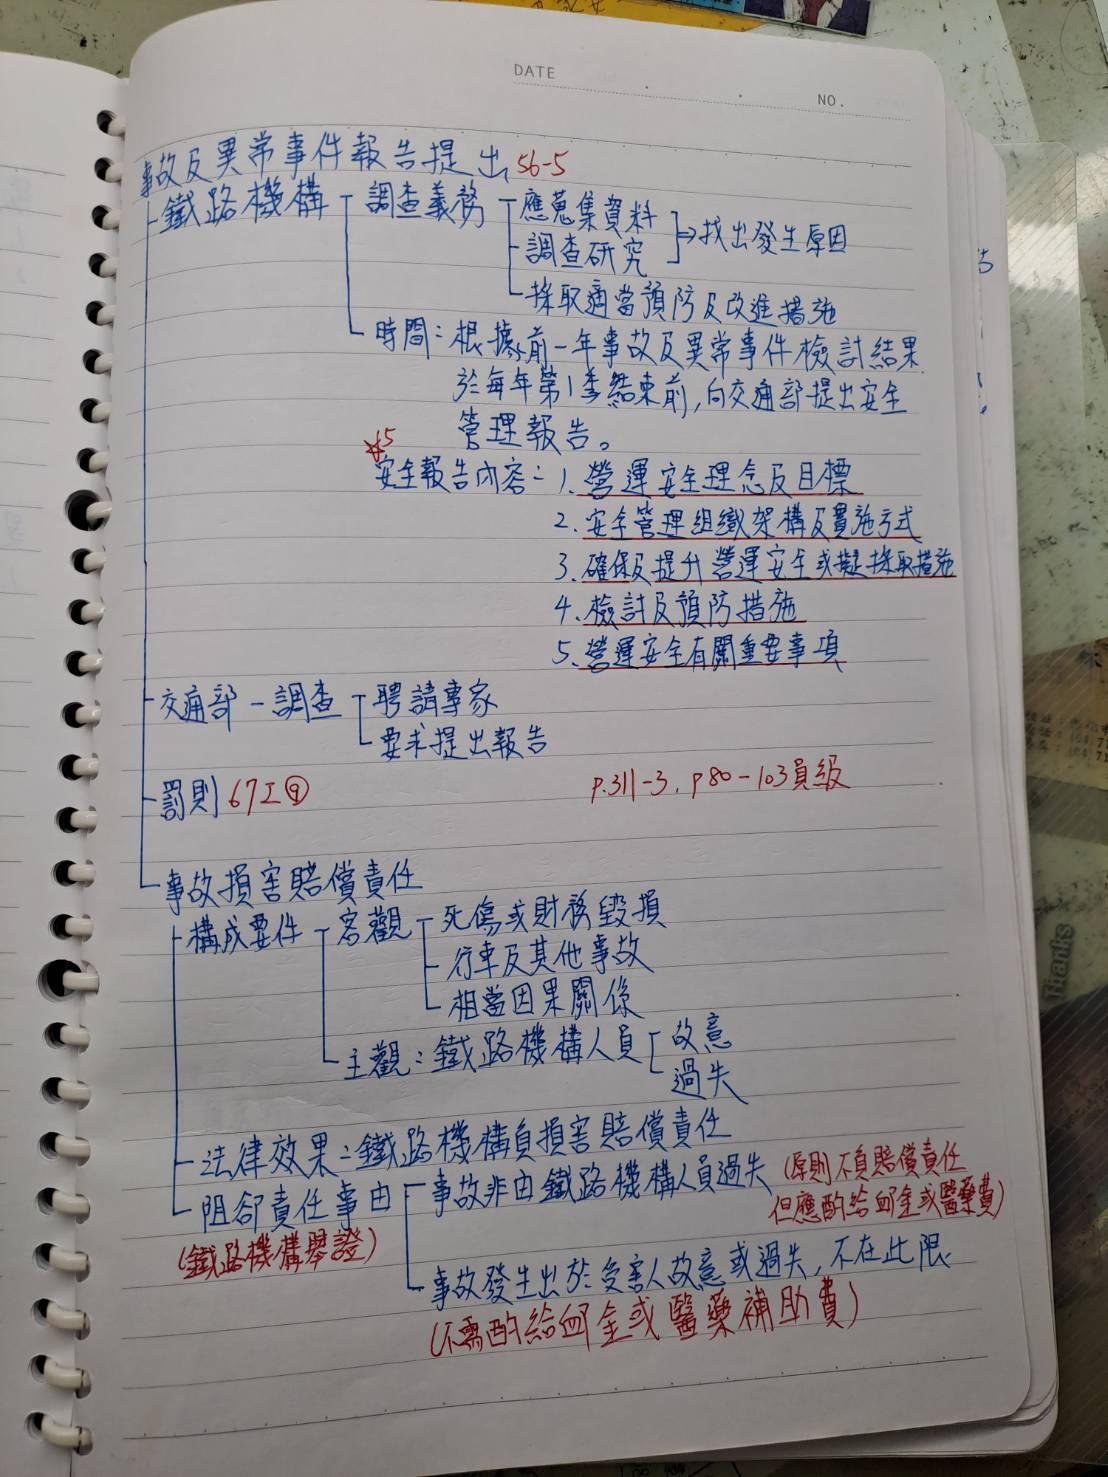 DATE
NO.
事故及異常事件報告提出 56-5
鐵路機構 調查義務 應蒐集資料
調查研究 找出發生原因
採取適當預防及改進措施
時間：根據前一年事故及異常事件檢討結果
於每年第1季結束前，向交通部提出安全
管理報告。
☆5
安全報告內容：1.營運安全理念及目標
2.安全管理組織架構及實施方式
3.確保及提升營運安全或擬採取措施
4.檢討及預防措施
5.營運安全有關重要事項
交通部－調查 聘請專家
要求提出報告
罰則 67I⑨ p.311-3, p80-103員級
事故損害賠償責任
構成要件 客觀 死傷或財務毀損
行車及其他事故
相當因果關係
主觀：鐵路機構人員 故意
過失
法律效果：鐵路機構負損害賠償責任
阻卻責任事由 事故非由鐵路機構人員過失 (原則不負賠償責任
但應酌給卹金或醫藥費)
(鐵路機構舉證)
事故發生出於受害人故意或過失，不在此限
(不需酌給卹金或醫藥補助費)
Thanks